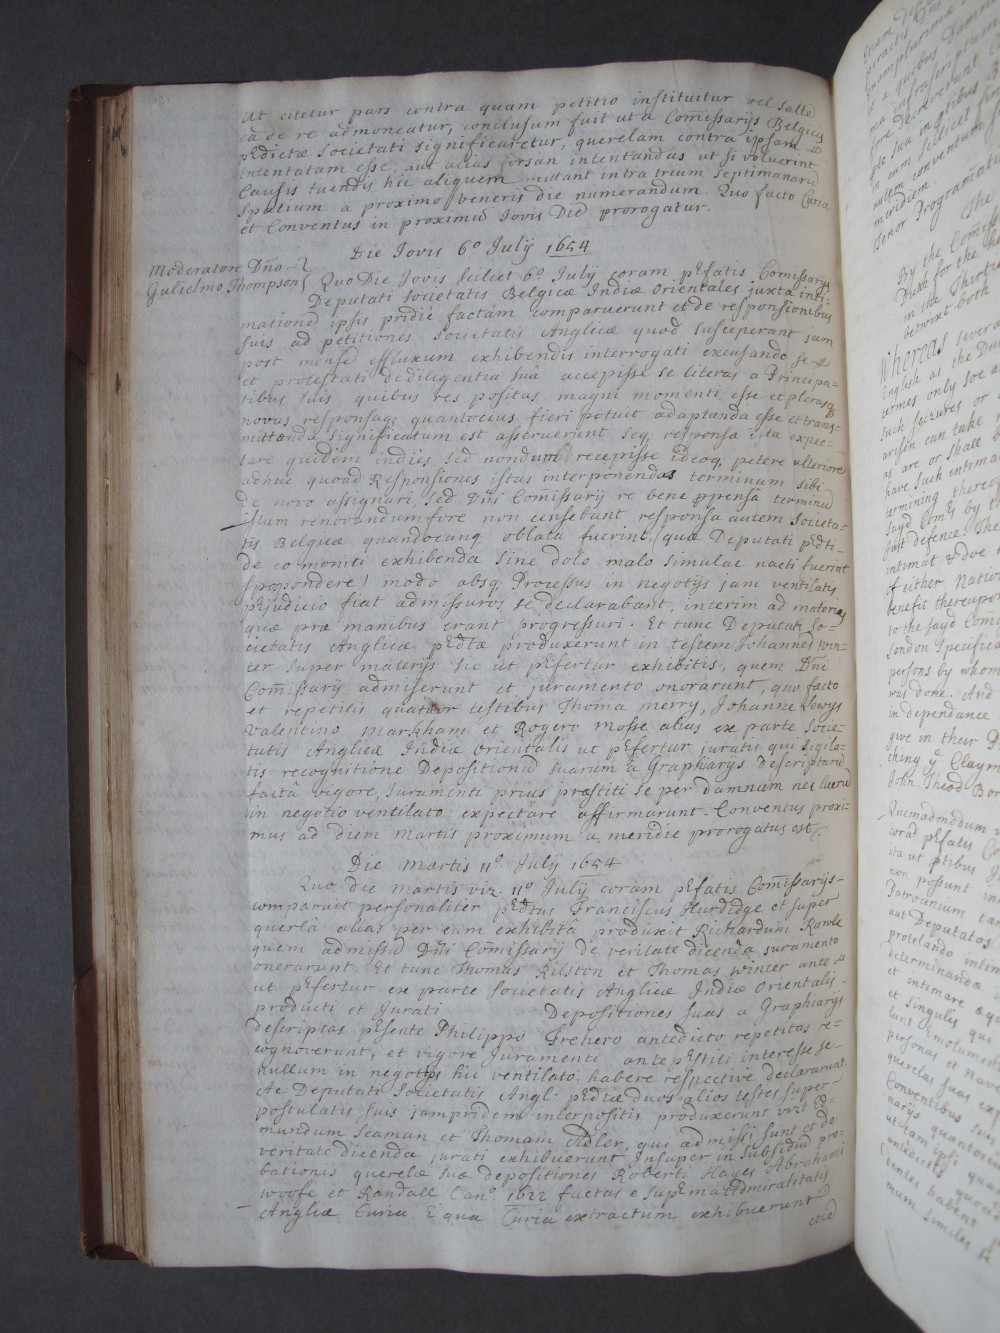 ut citetur pars contra quam petitio instituitur vel salte
ea de re admoneatur, conclusum fuit ut a Comissarijs Belgicis
pedictæ Societati significaretur, querelam contra ipsam
intentatam esse, aut alias forsan intentandas ut si voluerint
Causis tuendis hic aliquem mittant intra trium septimanarũ
spatium a proximo veneris die numerandum. Quo facto Curia
et Conventus in proximũ Iovis Diẽ prorogatur.
Die Iovis 6º Julÿ 1654
Moderatore Dño
Gulielmo Thompson
Quo Die Jovis scilcet 6º July coram pefatis Comissarijs
Deputati Societatis Belgicæ Indiæ Orientales juxta inti-
mationẽ ipsis pridie factam comparuerunt et de responsionibus
suis ad petitiones Societatis Anglicæ quod susceperant jam
post mensẽ effluxum exhibendis interrogati excusando se
et protestati de diligentia suâ accepisse se literas a Principa-
tibus suis, quibus res positas magni momenti esse et plerasq
novas responsaq quantocius fieri potuit adaptanda esse et trans-
mittenda significatum est asseruerunt seq responsa ista expec-
tare quidem indies sed nondum recepisse ideoq petere ulteriorẽ
adhuc quoad Responsiones istas interponendas terminum sibi
de novo assignari, sed Dñi Comissarij re bene ppensâ terminũ
istum renovandum fore non censebant responsa autem Societa-
tis Belgicæ quandocunq oblata fuerint (quæ Deputati pedti
de eo moniti exhibenda sine dolo malo simulac nacti fuerint
spopondere) modo absq Processus in negotijs jam ventilatis
pejudicio fiat admissuros se declarabant, interim ad materias
quæ præ manibus erant progressuri. Et tunc Deputati So-
cietatis Anglicæ pedtæ produxerunt in testem Johannẽ Win-
ter super materijs sic ut pefertur exhibitis, quem Dñi
Comissarij admiserunt et juramento onorarunt, quo facto
et repetitis quatuor testibus Thoma Merry, Johanne Lewys
Valentino Markham et Rogero Mosse alias ex parte Socie-
tatis Angliæ Indiæ Orientalis ut pefertur juratis qui sigila-
tis recognitione Depositionũ suarum a Grapharijs descriptarũ
factâ vigore Juramenti prius præstiti se per damnum nec lucrũ
in negotio ventilato expectare affirmarunt. Conventus proxi-
mus ad diem Martis proximum a meridie prorogatus est.
Die Martis 11º July 1654
Quo die Martis viz. 11º July coram pefatis Comissarijs
comparuit personaliter pedtus Franciscus Hurdidge et super
querlâ alias per eum exhibitâ produxit Richardum Rawle
quem admissũ Dñi Comissarij de veritate dicenda juramento
onerarunt. Et tunc Thomas Rilston et Thomas Winter ante
ut pefertur ex parte Societatis Anglicæ Indiæ Orientalis
producti et jurati Depositiones suas a Grapharijs
descriptas pesente Philippo Frehero antedicto repetitas re-
cognoverunt, et vigore Juramenti ante pestiti interesse se
nullum in negotijs hic ventilato habere respective declararunt.
Ac Deputati Societatis Angl: pedtæ duos alios testes super
postulatis suis jampridem interpositis produxerunt vizt Ed-
mundum Seaman et Thomam Adler, qui admissi sunt et de
veritate dicenda jurati exhibuerunt Insuper in subsidiũ pro-
bationis querelæ suæ depositiones Roberti Hayes Abrahami
Woofe et Randall Can. 1622 factas e supema Admiralitatis
Angliæ Curia. E qua Curia extractum exhibuerunt
eod
By the Comiss
Dutch for the
in the Thirtie
betwixt both
Whereas severa
English as the Du
termes only soe a
such seizures or
arisen can take
as are or shall b
have such intima
termining thereo
Sayd Comrs by t
just defence. Th
intimat & doe
of either Nation
benefit thereupon
to the sayd Com
London specifica
persons by whom
was done. And
in dependance
give in their
ching ye Claym
John. Theod Bor
Quemadmodum
corã pefatis Co
ita ut ptibus
non possunt in
Patrocinium
aut Deputatos
protelando intim
determinandæ
et intimare
et singulis qui
lunt Emolument
personas et nav
querelas suas ex
Conventibus
narijs quantoc
ut tam ipsi
antedictis qua
dentes habent
mum similes